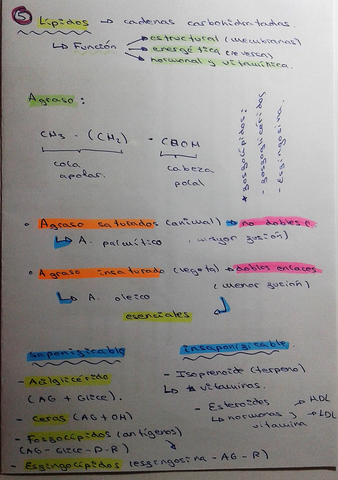 ⑤ Lípidos → cadenas carbohidratadas.
↳ Función → estructural (membranas)
→ energética (reversa)
→ hormonal y vitamínica.
Agraso:
CH3 - (CH2) - COOH
cola apolar.
cabeza polal
* fosfolípidos:
- fosfoglicéridos
- Esfingosina.
• Agraso saturados (animal) → no dobles e
↳ A. palmítico (mayor fusión)
• Agraso insaturado (vegeta) → dobles enlaces
↳ A. oleico (menor fusión)
esenciales
saponificable
- Acilglicérido
(AG + Glice).
- Ceras (AG + OH)
- Fosfolípidos (antígenos)
(AG - Glice - P - R)
- Esfingolípidos (esfingosina - AG - R)
insaponificable
- Isoprenoide (terpeno)
↳ * vitaminas.
- Esteroides → HDL
↳ hormonas y → LDL
vitamina